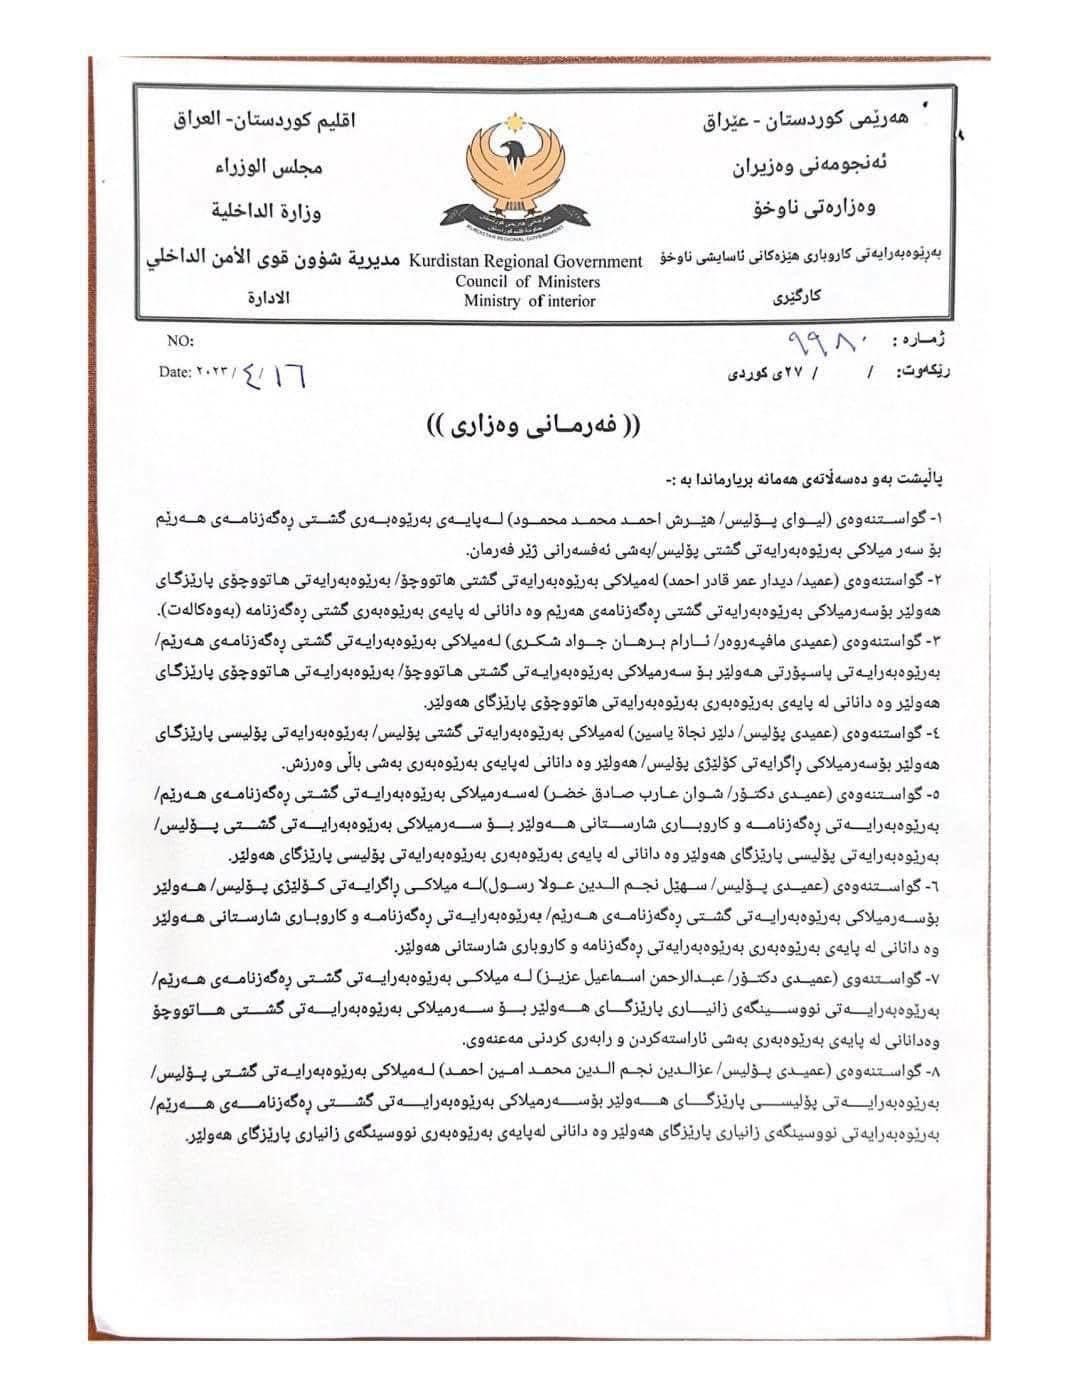 هەرێمی کوردستان - عێراق
ئەنجومەنی وەزیران
وەزارەتی ناوخۆ
بەڕێوەبەرایەتی کاروباری هێزەکانی ئاسایشی ناوخۆ
کارگێری
حکومەتی هەرێمی کوردستان
حكومة اقليم كوردستان
KURDISTAN REGIONAL GOVERNMENT
Kurdistan Regional Government
Council of Ministers
Ministry of interior
اقليم كوردستان- العراق
مجلس الوزراء
وزارة الداخلية
مديرية شؤون قوى الأمن الداخلي
الادارة
ژمـارە : ٩٩٨٠
NO:
ڕێکەوت: / / ٢٧ی کوردی
Date: ٢٠٢٣/ ٤/ ١٦
(( فەرمـانی وەزاری ))
پاڵپشت بەو دەسەڵاتەی هەمانە بریارماندا بە :-
١- گواستنەوەی (لیوای پۆلیس/ هێرش احمد محمد محمود) لەپایەی بەرێوەبەری گشتی ڕەگەزنامەی هەرێم
بۆ سەر میلاکی بەرێوەبەرایەتی گشتی پۆلیس/بەشی ئەفسەرانی ژێر فەرمان.
٢- گواستنەوەی (عمید/ دیدار عمر قادر احمد) لەمیلاکی بەرێوەبەرایەتی گشتی هاتووچۆ/ بەرێوەبەرایەتی هاتووچۆی پارێزگای
هەولێر بۆسەرمیلاکی بەرێوەبەرایەتی گشتی ڕەگەزنامەی هەرێم وە دانانی لە پایەی بەرێوەبەری گشتی ڕەگەزنامە (بەوەکالەت).
٣- گواستنەوەی (عمیدی مافپەروەر/ ئارام برهان جواد شکری) لەمیلاکی بەرێوەبەرایەتی گشتی ڕەگەزنامەی هەرێم/
بەرێوەبەرایەتی پاسپۆرتی هەولێر بۆ سەرمیلاکی بەرێوەبەرایەتی گشتی هاتووچۆ/ بەرێوەبەرایەتی هاتووچۆی پارێزگای
هەولێر وە دانانی لە پایەی بەرێوەبەری بەرێوەبەرایەتی هاتووچۆی پارێزگای هەولێر.
٤- گواستنەوەی (عمیدی پۆلیس/ دلێر نجاة یاسین) لەمیلاکی بەرێوەبەرایەتی گشتی پۆلیس/ بەرێوەبەرایەتی پۆلیسی پارێزگای
هەولێر بۆسەرمیلاکی ڕاگرایەتی کۆلێژی پۆلیس/ هەولێر وە دانانی لەپایەی بەرێوەبەری بەشی باڵی وەرزش.
٥- گواستنەوەی (عمیدی دکتۆر/ شوان عارب صادق خضر) لەسەرمیلاکی بەرێوەبەرایەتی گشتی ڕەگەزنامەی هەرێم/
بەرێوەبەرایەتی ڕەگەزنامە و کاروباری شارستانی هەولێر بۆ سەرمیلاکی بەرێوەبەرایەتی گشتی پۆلیس/
بەرێوەبەرایەتی پۆلیسی پارێزگای هەولێر وە دانانی لە پایەی بەرێوەبەری بەرێوەبەرایەتی پۆلیسی پارێزگای هەولێر.
٦- گواستنەوەی (عمیدی پۆلیس/ سهێل نجم الدین عولا رسول)لە میلاکی ڕاگرایەتی کۆلێژی پۆلیس/ هەولێر
بۆسەرمیلاکی بەرێوەبەرایەتی گشتی ڕەگەزنامەی هەرێم/ بەرێوەبەرایەتی ڕەگەزنامە و کاروباری شارستانی هەولێر
وە دانانی لە پایەی بەرێوەبەری بەرێوەبەرایەتی ڕەگەزنامە و کاروباری شارستانی هەولێر.
٧- گواستنەوەی (عمیدی دکتۆر/ عبدالرحمن اسماعیل عزیز) لە میلاکی بەرێوەبەرایەتی گشتی ڕەگەزنامەی هەرێم/
بەرێوەبەرایەتی نووسینگەی زانیاری پارێزگای هەولێر بۆ سەرمیلاکی بەرێوەبەرایەتی گشتی هاتووچۆ
وەدانانی لە پایەی بەرێوەبەری بەشی ئاراستەکردن و رابەری کردنی مەعنەوی.
٨- گواستنەوەی (عمیدی پۆلیس/ عزالدین نجم الدین محمد امین احمد) لەمیلاکی بەرێوەبەرایەتی گشتی پۆلیس/
بەرێوەبەرایەتی پۆلیسی پارێزگای هەولێر بۆسەرمیلاکی بەرێوەبەرایەتی گشتی ڕەگەزنامەی هەرێم/
بەرێوەبەرایەتی نووسینگەی زانیاری پارێزگای هەولێر وە دانانی لەپایەی بەرێوەبەری نووسینگەی زانیاری پارێزگای هەولێر.